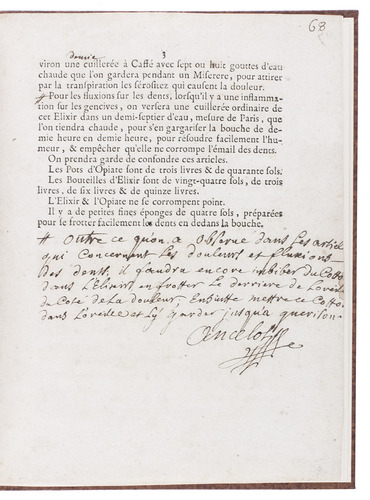 68
demie
3
viron une cuillerée à Caffé avec sept ou huit gouttes d'eau
chaude que l'on gardera pendant un Miserere, pour attirer
par la transpiration les sérosités qui causent la douleur.
# Pour les fluxions sur les dents, lorsqu'il y a une inflamma-
tion sur les gencives, on versera une cuillerée ordinaire de
cet Elixir dans un demi-septier d'eau, mesure de Paris, que
l'on tiendra chaude, pour s'en gargariser la bouche de de-
mie heure en demie heure, pour résoudre facilement l'hu-
meur, & empêcher qu'elle ne corrompe l'émail des dents.
On prendra garde de confondre ces articles.
Les Pots d'Opiate sont de trois livres & de quarante sols.
Les Bouteilles d'Elixir sont de vingt-quatre sols, de trois
livres, de six livres & de quinze livres.
L'Elixir & l'Opiate ne se corrompent point.
Il y a de petites fines éponges de quatre sols, préparées
pour se frotter facilement les dents en dedans la bouche.
# outre ce qu'on a observé dans les article
qui concernent les douleurs et fluxions
des dents, il faudra encore imbiber du Cotton
dans L'Elixir, en frotter Le derriere de Loreille
du Coté de La douleur, Ensuitte mettre ce Cotton
dans Loreille et Ly garder jusqua guerison.
Ancelot